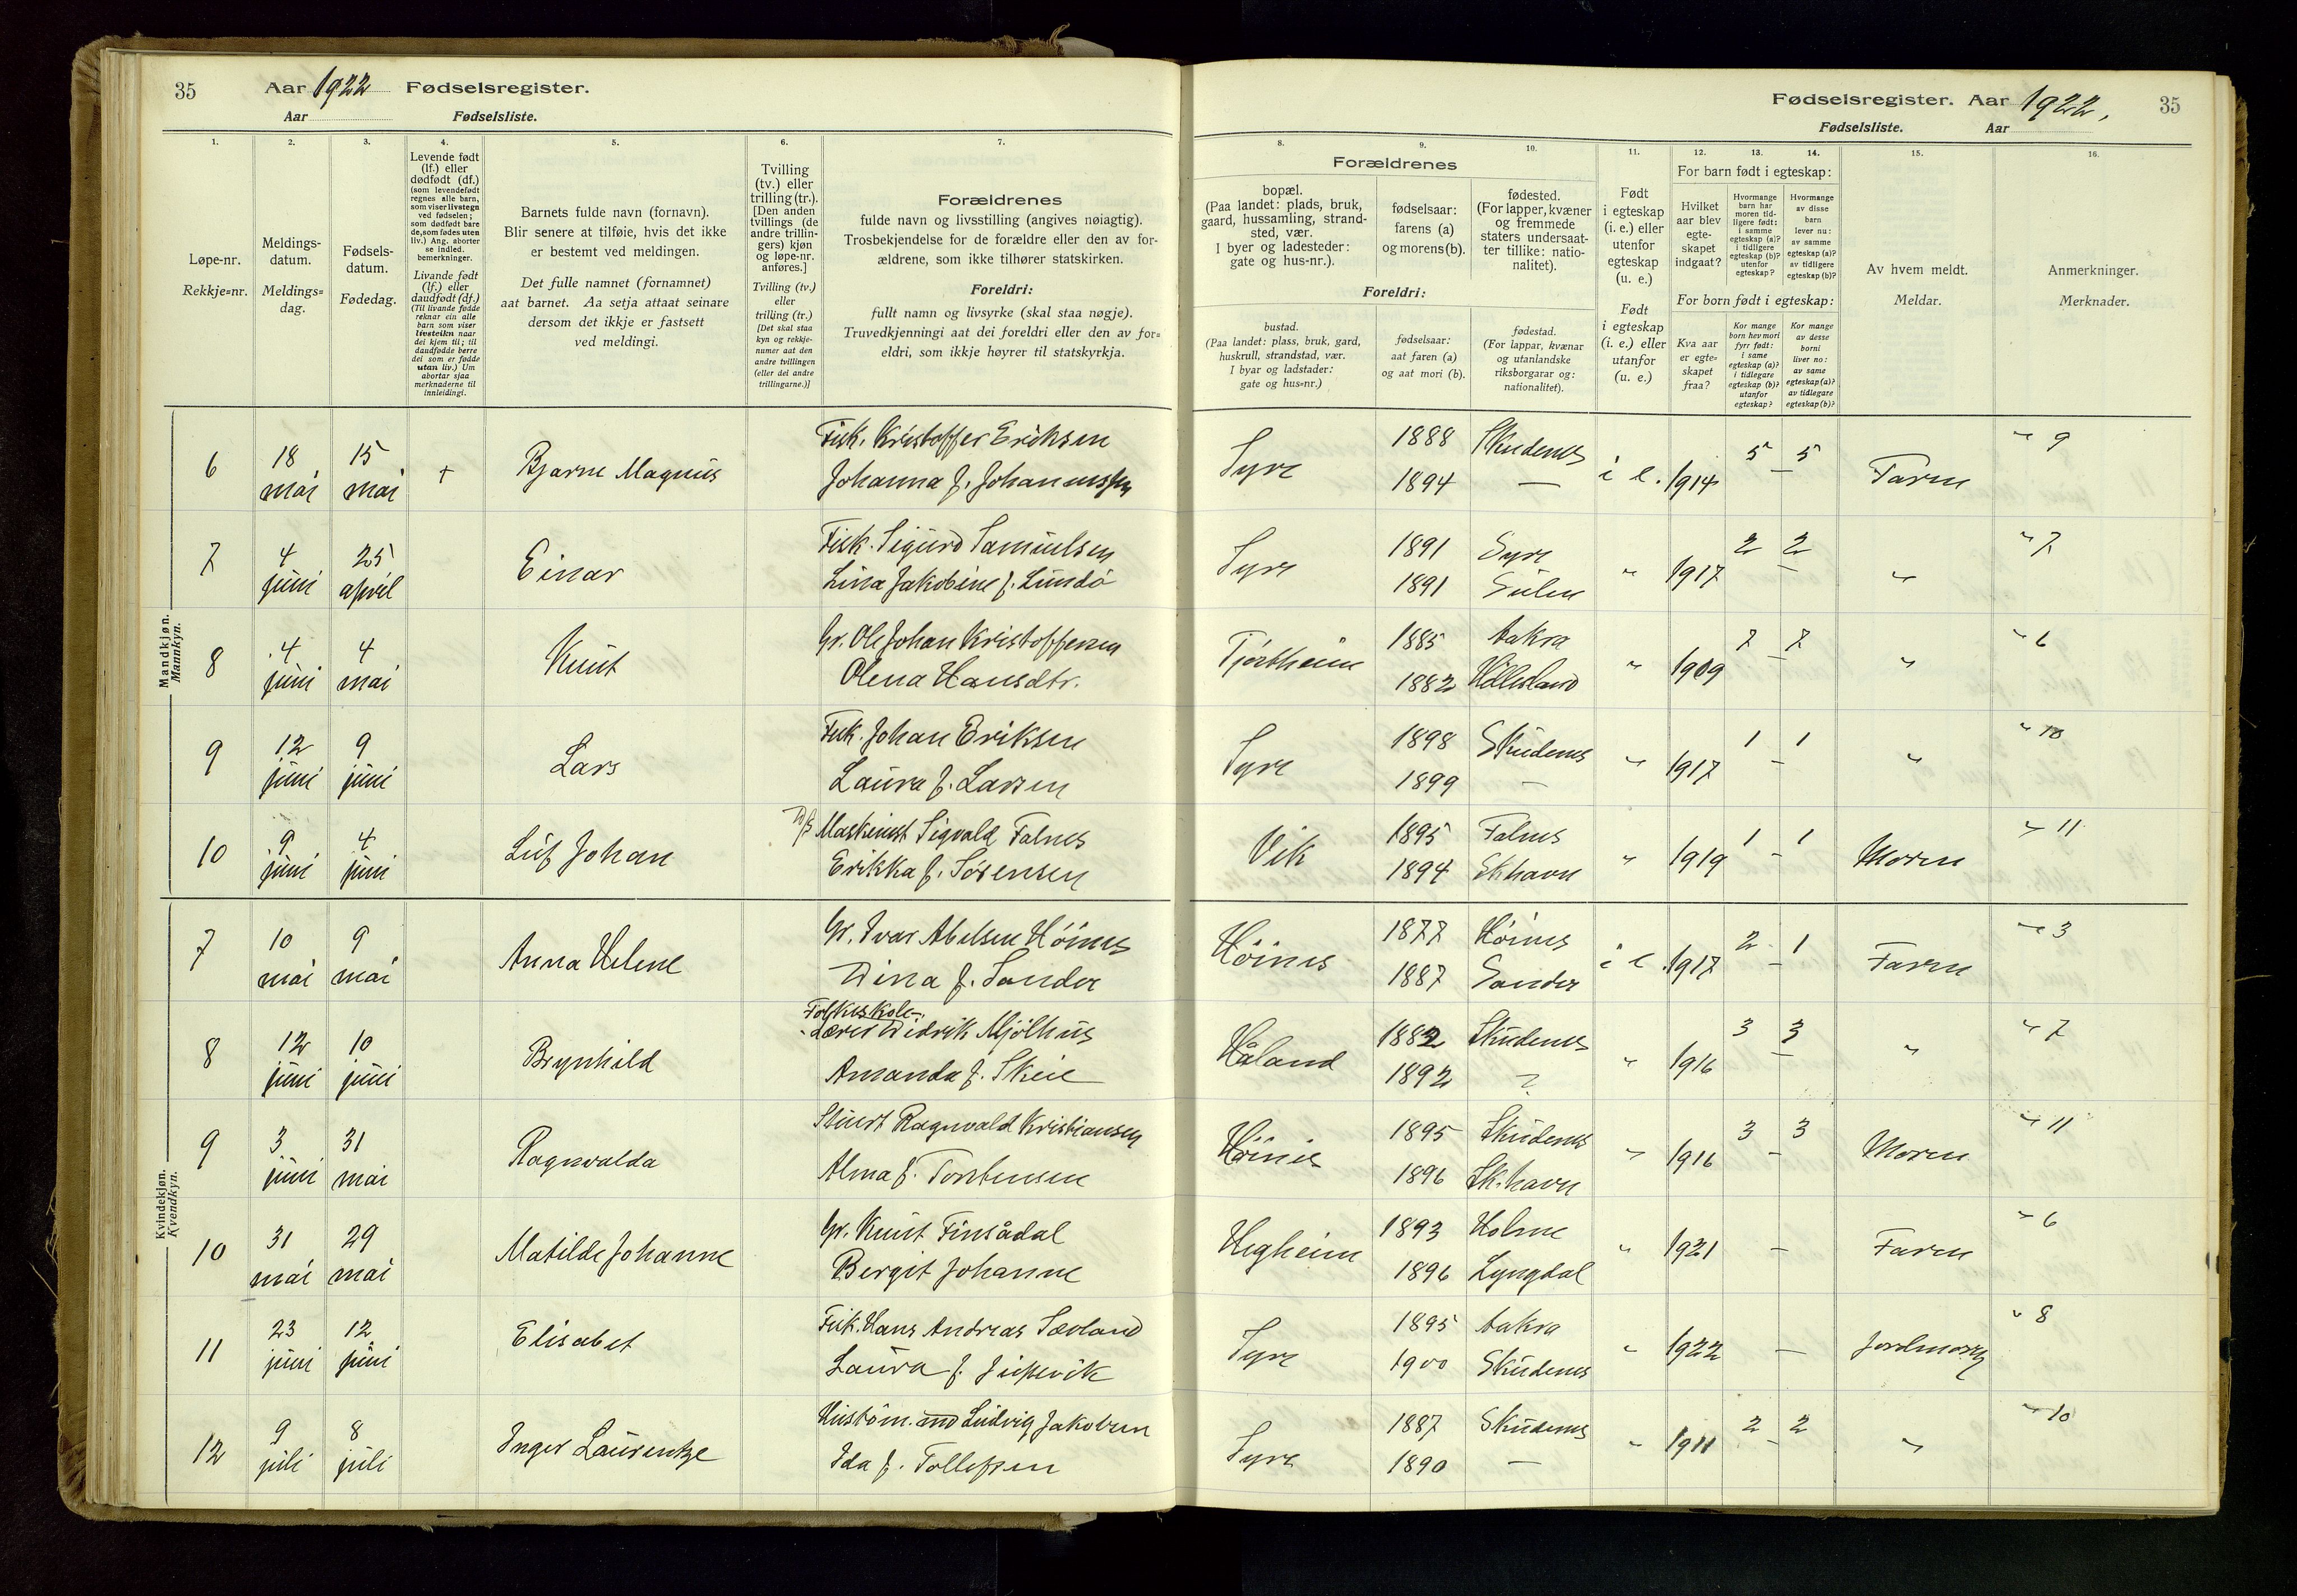 35 Aar 1922 Fødselsregister.
Aar Fødselsliste.
Fødselsregister. Aar 1922, 35
Fødselsliste. Aar
1. 2. 3. 4. 5. 6. 7. 8. 9. 10. 11. 12. 13. 14. 15. 16.
Løpe-nr.
Rekkje=nr.
Meldings-
datum.
Meldings=
dag.
Fødsels-
datum.
Fødedag.
Levende født
(lf.) eller
dødfødt (df.)
(som levendefødt
regnes alle barn,
som viser livstegn
ved fødselen;
som dødfødt bare
de, som fødes uten
liv.) Ang. aborter
se indled.
bemerkninger.
Livande født
(lf.) eller
daudfødt (df.)
(Til livande fødde
reknar ein alle
barn som viser
livsteikn naar
dei kjem til; til
daudfødde berre
dei som er fødde
utan liv.) Um
abortar sjaa
merknaderne til
innleidingi.
Barnets fulde navn (fornavn).
Blir senere at tilføie, hvis det ikke
er bestemt ved meldingen.
Det fulle namnet (fornamnet)
aat barnet. Aa setja attaat seinare
dersom det ikkje er fastsett
ved meldingi.
Tvilling
(tv.) eller
trilling (tr.).
[Den anden
tvillings (de
andre trillin-
gers) kjøn
og løpe-nr.
anføres.]
Tvilling (tv.)
eller
trilling (tr.)
[Det skal staa
kyn og rekkje-
numer aat den
andre tvillingen
(eller dei andre
trillingarne.)]
Forældrenes
fulde navn og livsstilling (angives nøiagtig).
Trosbekjendelse for de forældre eller den av for-
ældrene, som ikke tilhører statskirken.
Foreldri:
fullt namn og livsyrke (skal staa nøgje).
Truvedkjenningi aat dei foreldri eller den av for=
eldri, som ikkje høyrer til statskyrkja.
Forældrenes
bopæl.
(Paa landet: plads, bruk,
gaard, hussamling, strand-
sted, vær.
I byer og ladesteder:
gate og hus-nr.).
fødselsaar:
farens (a)
og morens (b).
fødested.
(For lapper, kvæner
og fremmede
staters undersaat-
ter tillike: natio-
nalitet).
Foreldri:
bustad.
(Paa landet: plass, bruk, gard,
huskrull, strandstad, vær.
I byar og ladstader:
gate og hus=nr.)
fødselsaar:
aat faren (a)
og aat mori (b).
fødestad.
(For lappar, kvænar
og utanlandske
riksborgarar og:
nationalitet).
Født
i egteskap
(i. e.) eller
utenfor
egteskap
(u. e.)
Født
i egteskap
(i. e.) eller
utanfor
(u. e.)
For barn født i egteskap:
Hvilket
aar blev
egte-
skapet
indgaat?
Hvormange
barn har
moren tid-
ligere født:
i samme
egteskap (a)?
i tidligere
egteskap (b)?
utenfor
egteskap?
Hvormange
av disse
barn
lever nu:
av samme
egteskap (a)?
av tidligere
egteskap (b)?
For born født i egteskap:
Kva aar
er egte=
skapet
fraa?
Kor mange
born hev mori
fyrr født:
i same
egteskap (a)?
i tidlegare
egteskap (b)?
utanfor
egteskap?
Kor mange
av desse
borni
liver no:
av same
egteskap (a)?
av tidlegare
egteskap (b)?
Av hvem meldt.
Meldar.
Anmerkninger.
Merknader.
Mandkjøn.
Mannkyn.
6 18 mai 15 mai + Bjarne Magnus Fisk. Kristoffer Eriksen Syre 1888 Skudenes i e. 1914 5 - 5 Faren " 9
Johanna f. Johannessen 1894 —
7 4 juni 25 april Einar Fisk. Sigurd Samuelsen Syre 1891 Syre " 1917 2 - 2 " " 7
Lina Jakobine f. Lundö 1891 Sulen
8 4 juni 4 mai Knut Gr. Ole Johan Kristoffersen Tjöstheim 1885 Aakra " 1909 7 - 7 " " 6
Olena Hansdtr. 1882
9 12 juni 9 juni Lars Fisk. Johan Eriksen Syre 1898 Skudenes " 1917 1 - 1 " " 10
Laura f. Larsen 1899 —
10 9 juni 4 juni Leif Johan D/S Maskinist Sigvald Falnes Vik 1895 Falnes " 1919 1 - 1 Moren " 11
Erikka f. Sörensen 1894 Skhavn
Kvindekjøn.
Kvendkyn.
7 10 mai 9 mai Anna Helene Gr. Ivar Abelsen Höines Höines 1877 Höines i e. 1917 2 - 1 Faren " 3
Dina f. Sander 1887 Sander
8 12 juni 10 juni Brynhild Folkeskole-
Lærer Didrik Mjölhus Håland 1882 Skudenes " 1916 3 - 3 " " 7
Amanda f. Skeie 1892
9 3 juni 31 mai Ragnvalda Stuert Ragnvald Kristiansen Höines 1895 Skudenes " 1916 3 - 3 Moren " 11
Alma f. Torstensen 1896 Sk.havn
10 31 mai 29 mai Matilde Johanne Gr. Knut Finsådal Hegheim 1893 Holme " 1921 - Faren " 6
Bergit Johanne 1896 Lyngdal
11 23 juni 12 juni Elisabet Fisk. Hans Andreas Sævland Syre 1895 Aakra " 1922 — Jordmoren " 8
Laura f. 1900 Skudenes
12 9 juli 8 juli Inger Laurentze Ludvig Jakobsen Syre 1887 Skudenes " 1911 2 - 2 " " 10
Ida f. Tollefsen 1890 —